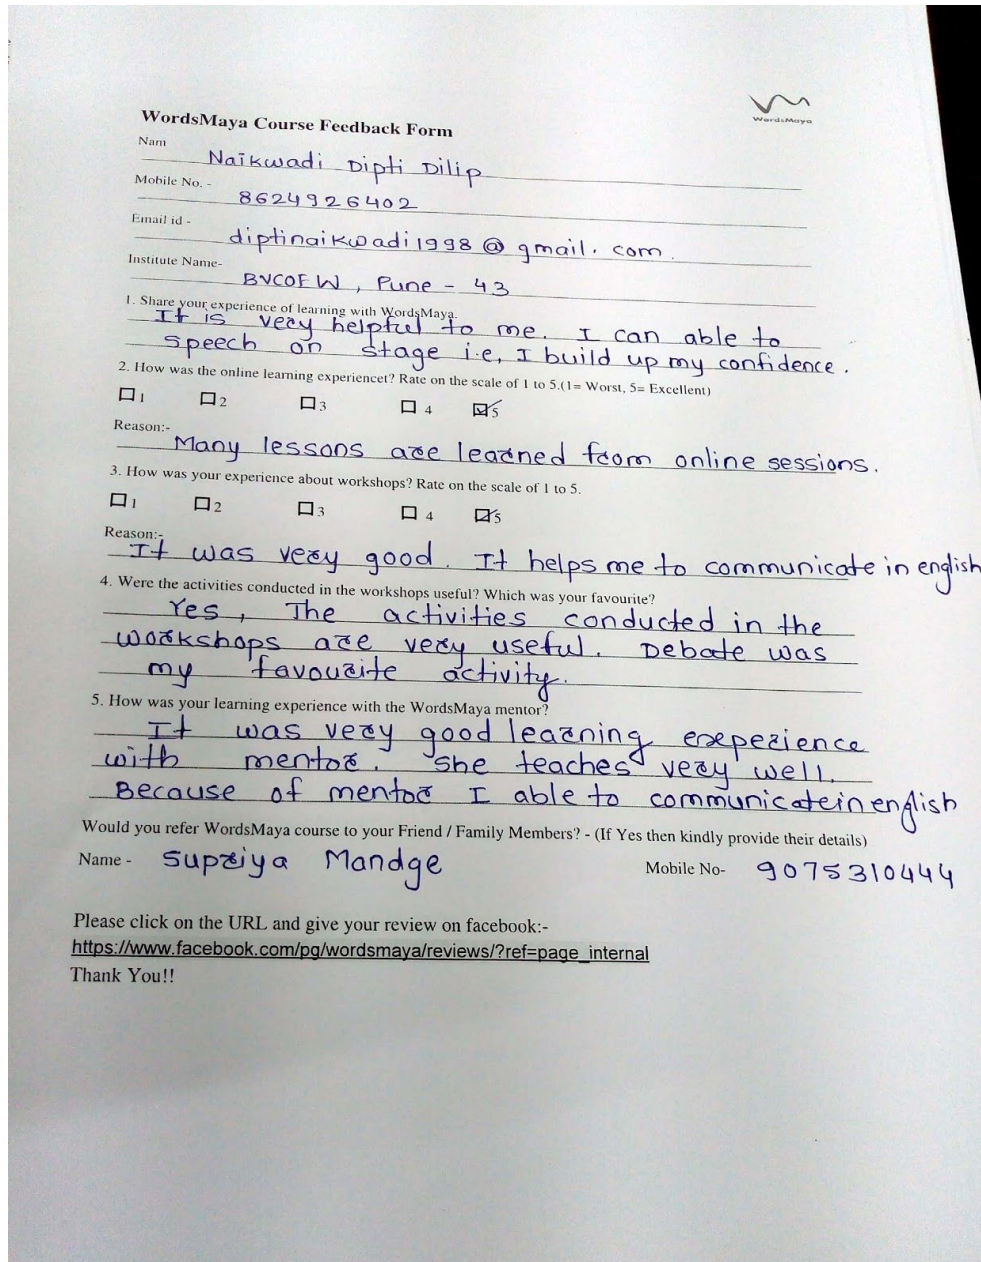 WordsMaya
WordsMaya Course Feedback Form
Nam
Naikwadi Dipti Dilip
Mobile No. -
8624926402
Email id -
diptinaikwadi1998@gmail.com.
Institute Name-
BVCOEW, Pune - 43
1. Share your experience of learning with WordsMaya.
It is very helpful to me. I can able to
speech on stage i.e, I build up my confidence.
2. How was the online learning experiencet? Rate on the scale of 1 to 5.(1= Worst, 5= Excellent)
☐1 ☐2 ☐3 ☐ 4 ☑5
Reason:-
Many lessons are learned from online sessions.
3. How was your experience about workshops? Rate on the scale of 1 to 5.
☐1 ☐2 ☐3 ☐ 4 ☑5
Reason:-
It was very good. It helps me to communicate in english
4. Were the activities conducted in the workshops useful? Which was your favourite?
Yes, The activities conducted in the
workshops are very useful. Debate was
my favourite activity.
5. How was your learning experience with the WordsMaya mentor?
It was very good learning experience
with mentor. She teaches very well.
Because of mentor I able to communicate in english
Would you refer WordsMaya course to your Friend / Family Members? - (If Yes then kindly provide their details)
Name - Supriya Mandge Mobile No- 9075310444
Please click on the URL and give your review on facebook:-
https://www.facebook.com/pg/wordsmaya/reviews/?ref=page_internal
Thank You!!